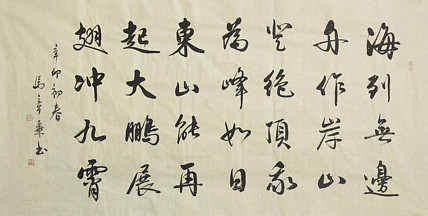 海到無邊
天作岸山
登絶頂我
為峰如日
東山能再
起大鵬展
翅冲九霄
辛卯初春
馬
书